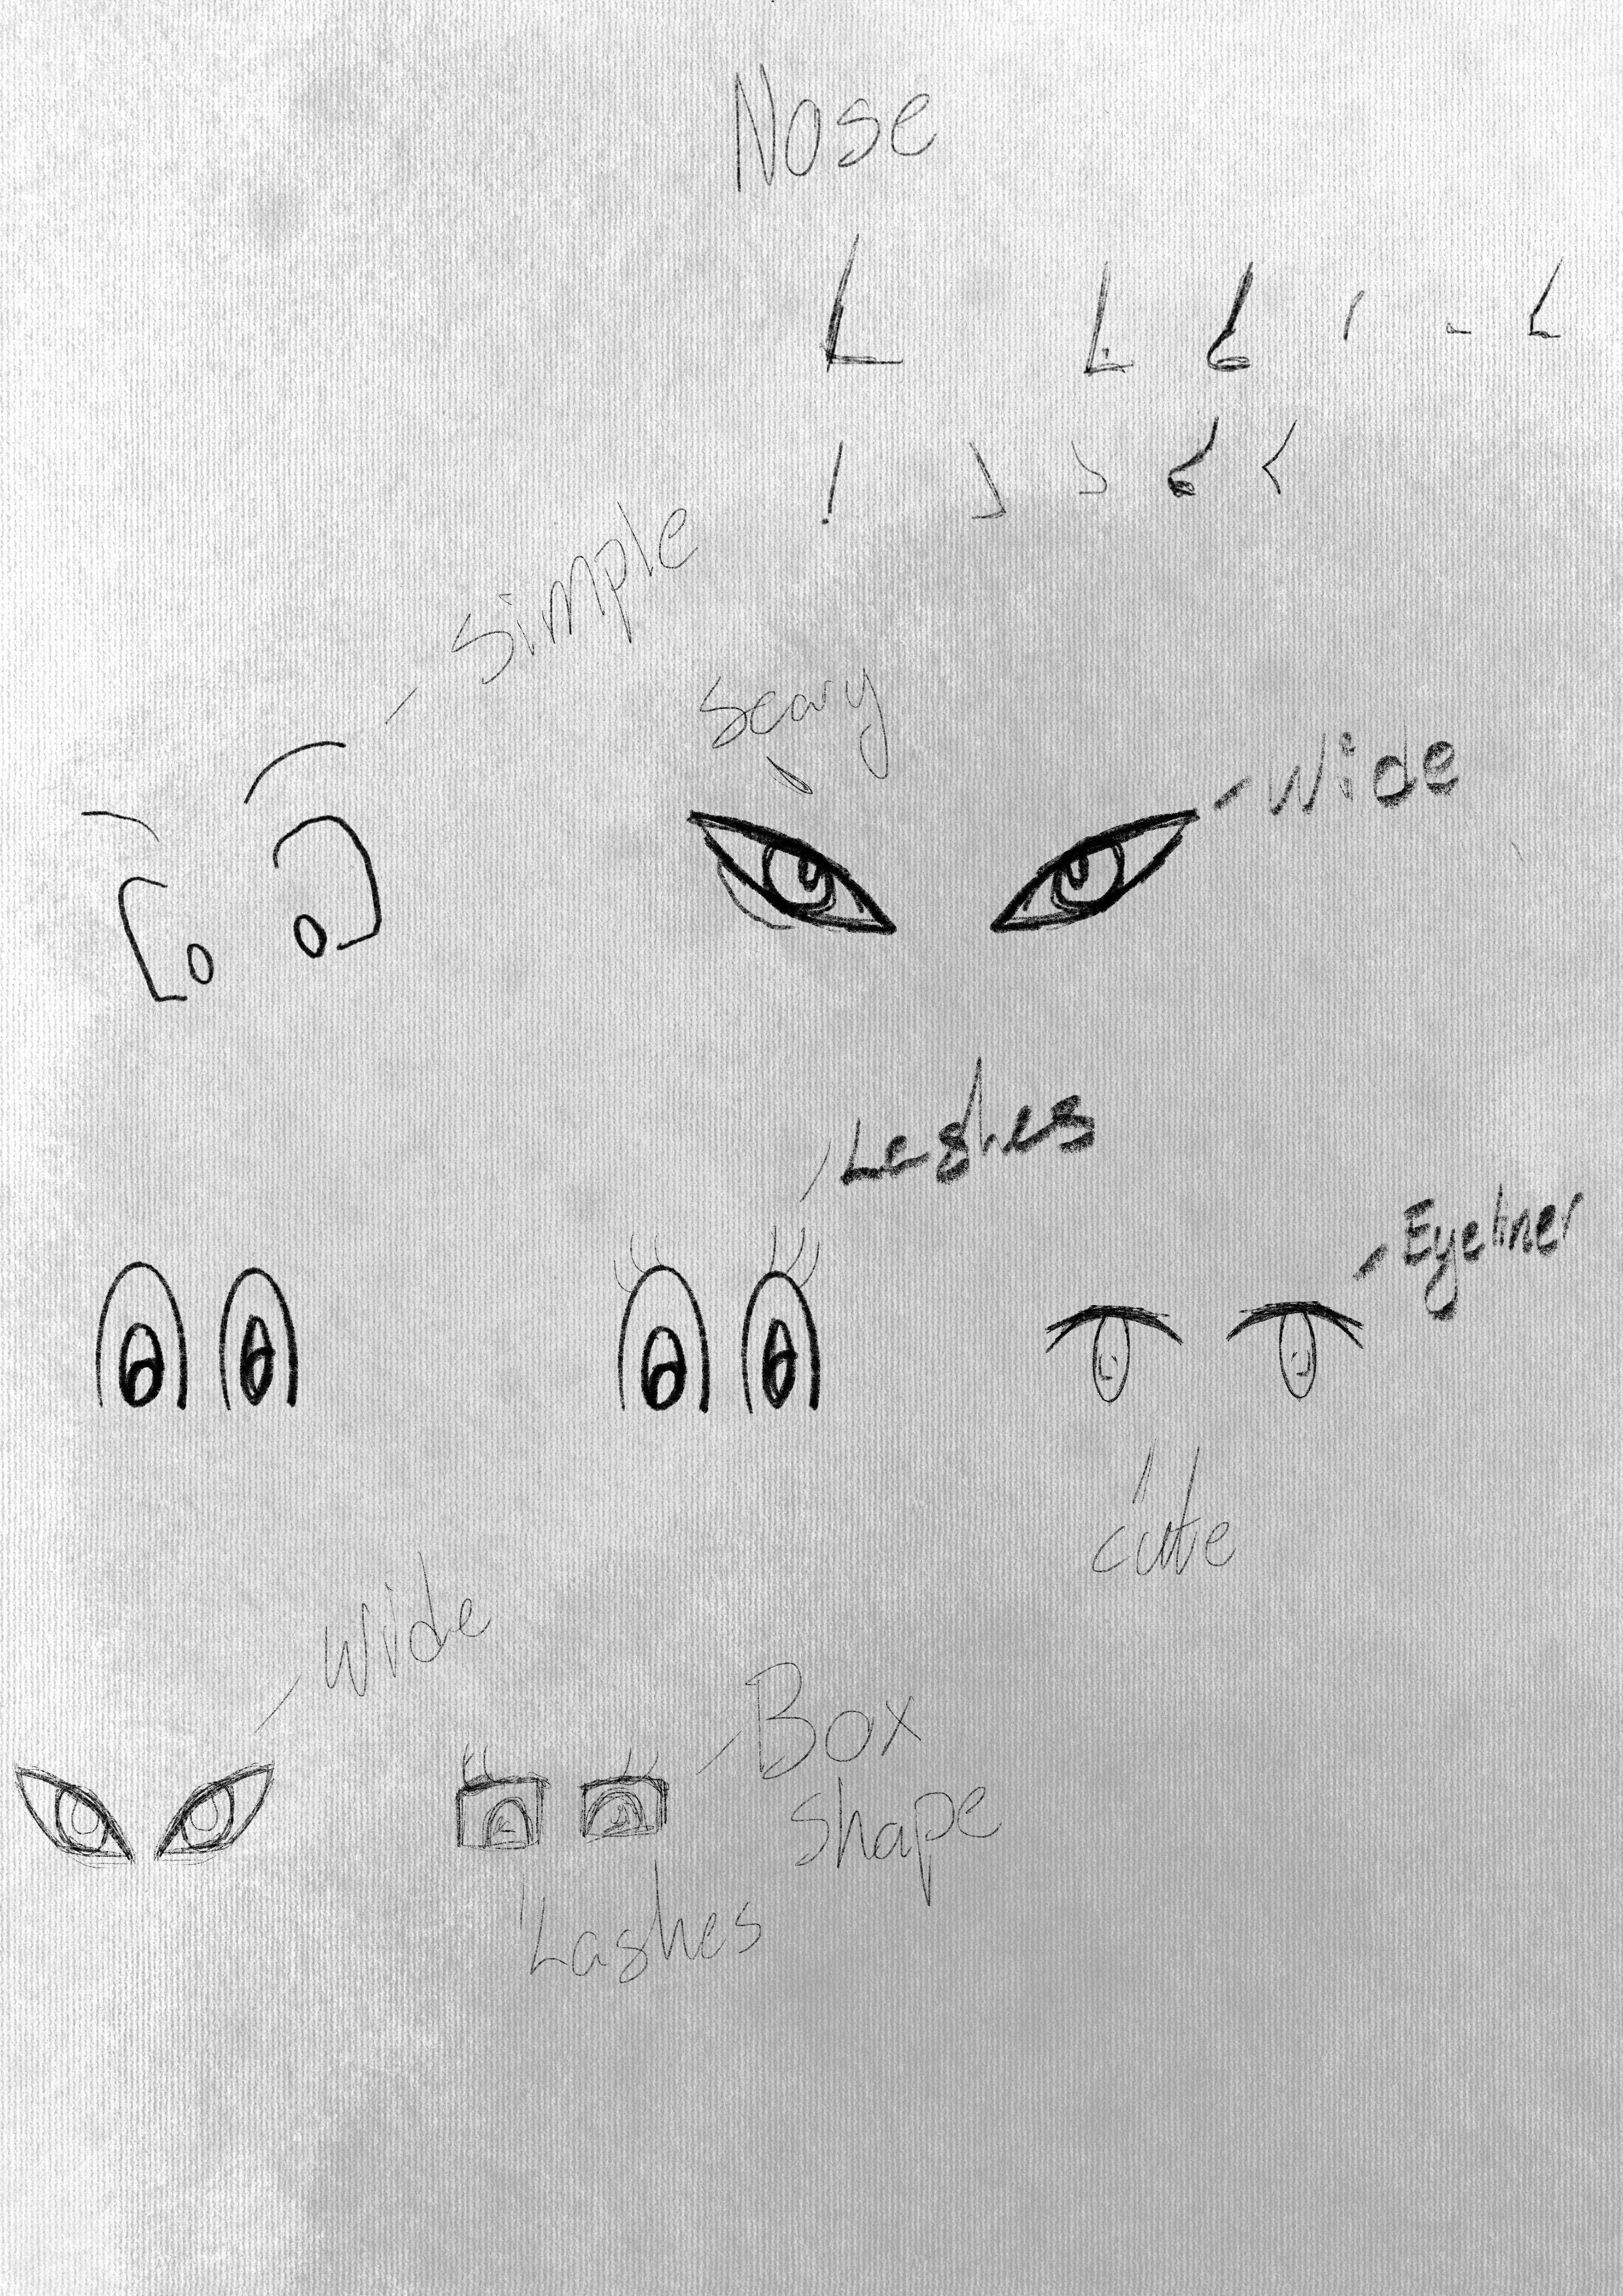 Nose
simple
Scary
Wide
Lashes
Eyeliner
cute
Wide
Box
shape
Lashes